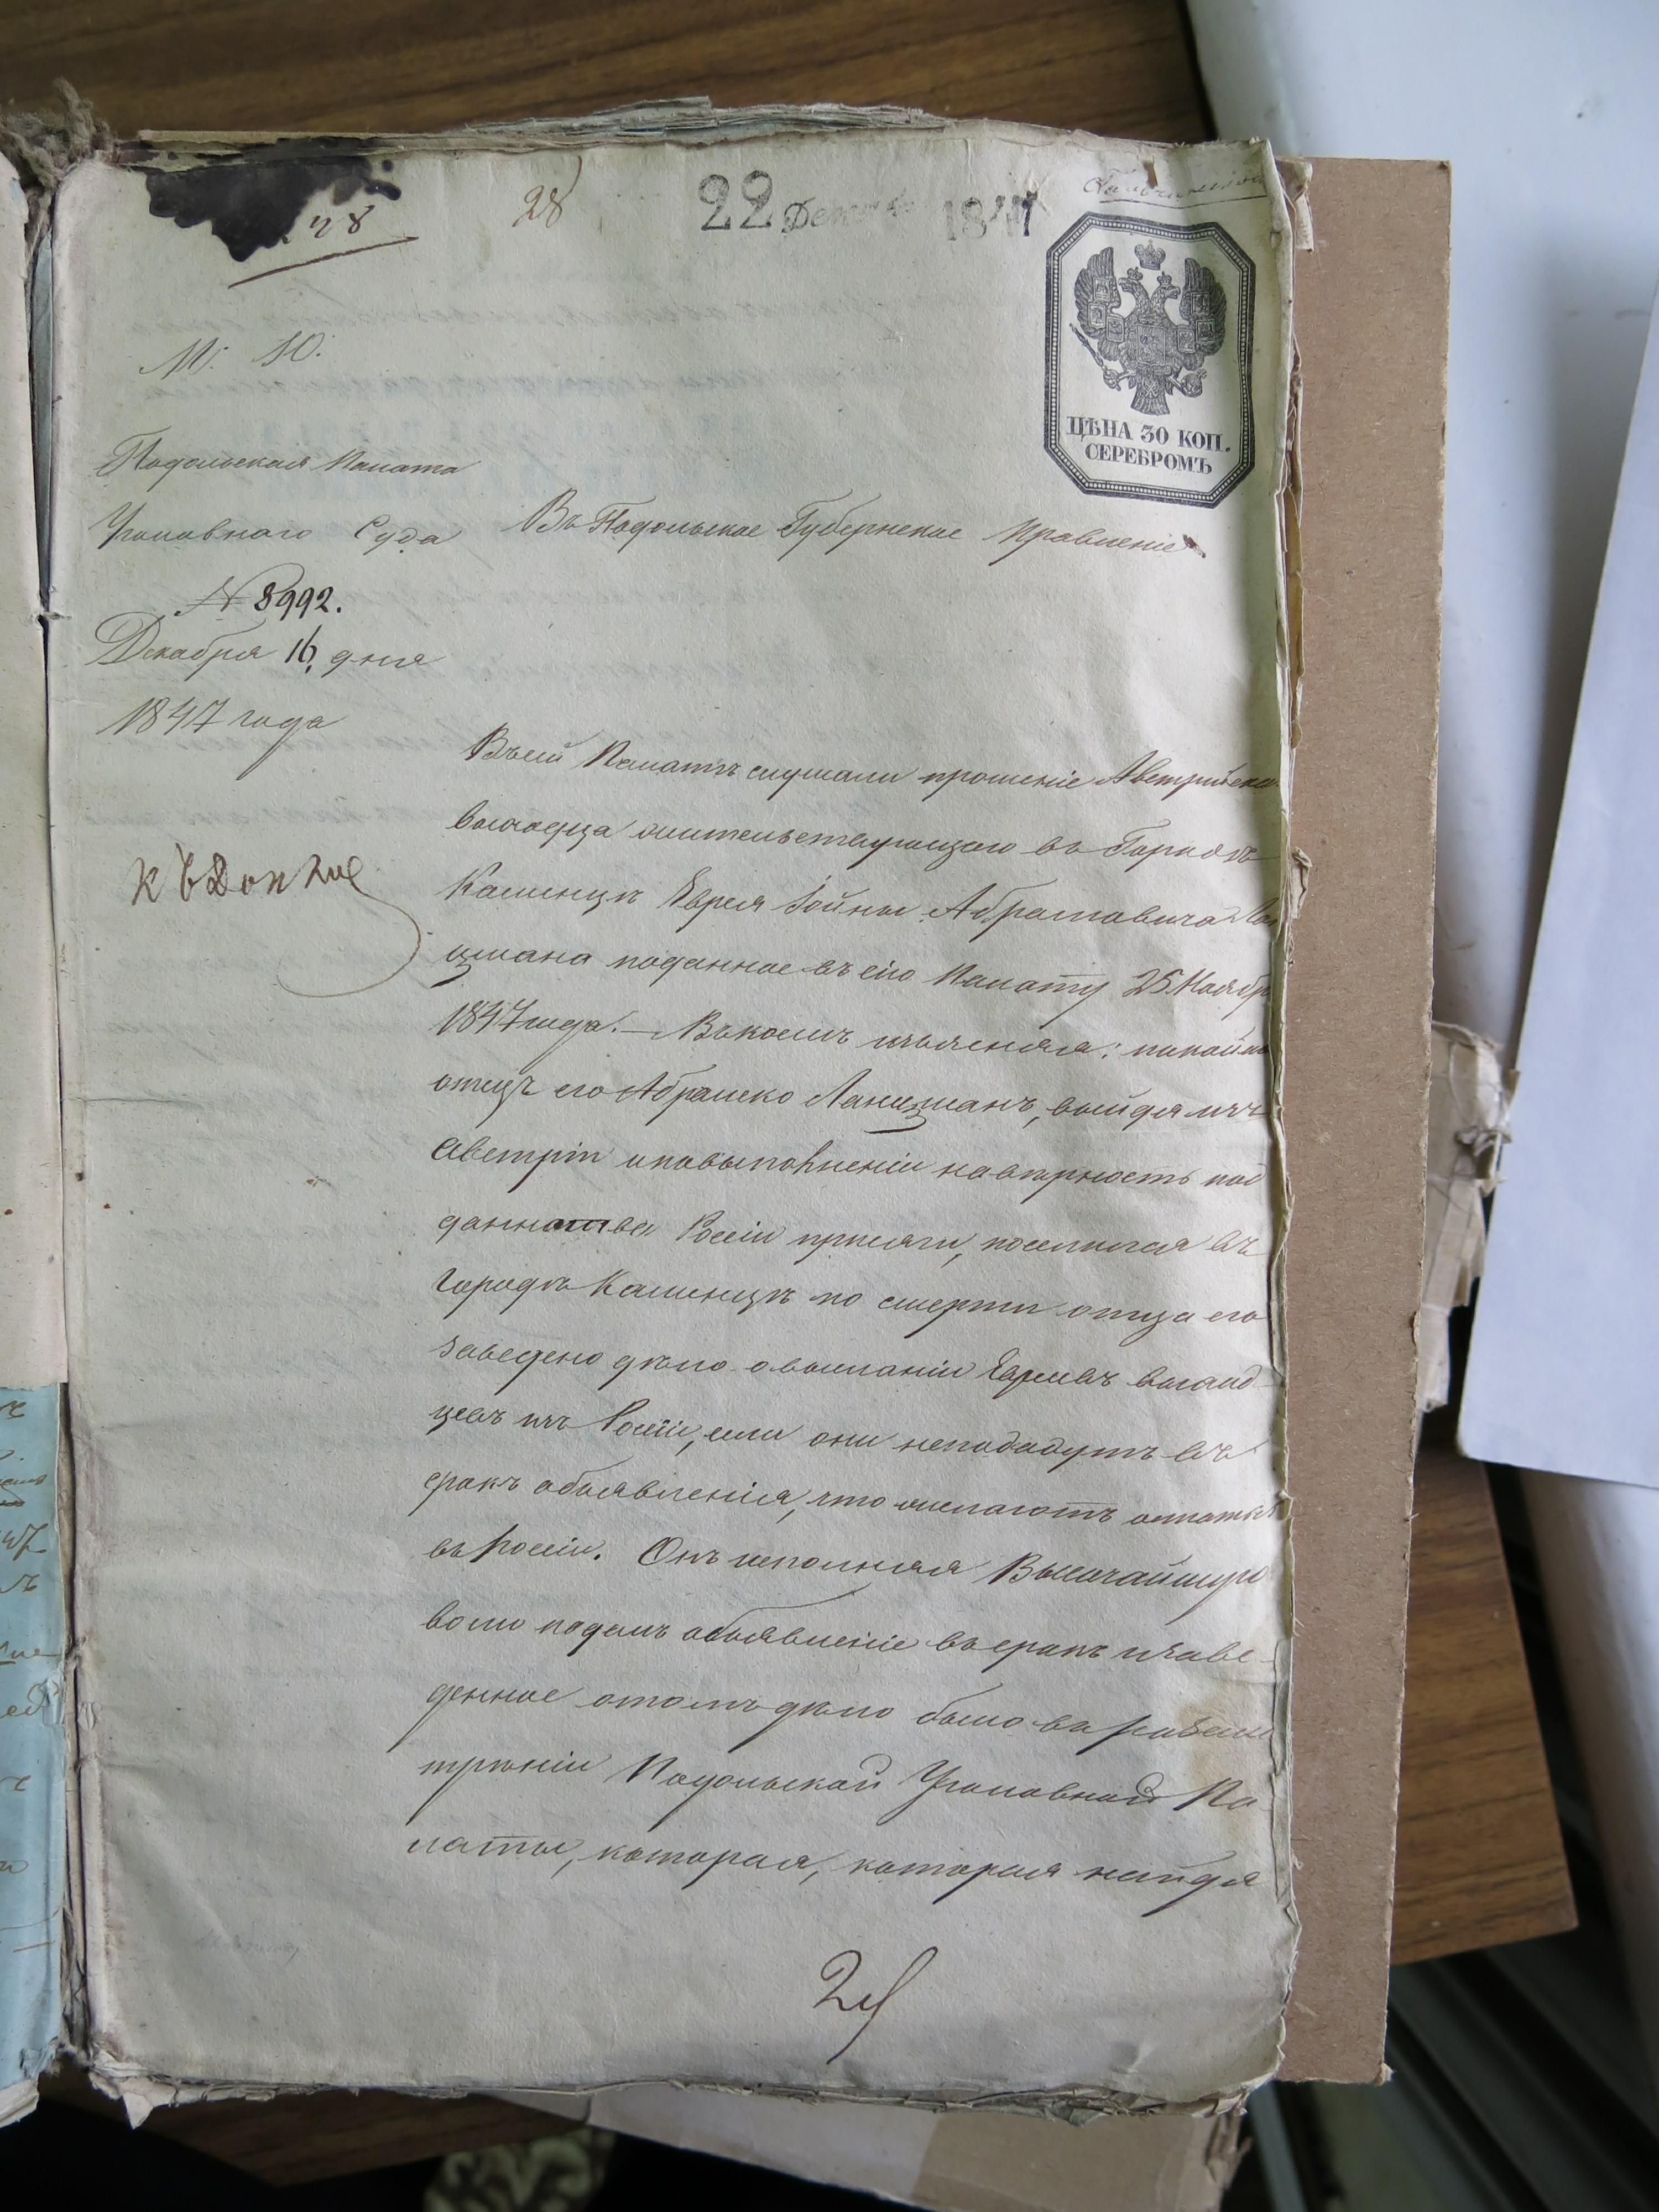 28
28
22 Декабр 1847
ЦѢНА 30 КОП.
СЕРЕБРОМЪ
М. Ю.
Подольская Палата
Уголовнаго Суда
Въ Подольское Губернское Правленіе
№ 8992.
Декабря 16, дня
1847 года
Въсей Палатѣ слушали прошеніе Австрійска
выходца жительствующаго въ Городѣ
Каменцѣ Еврея Іойны Абрамовича Лан
цмана поданное въ сію Палату 25 Ноябр
1847 года. — Въ коемъ изъясняя: покойн
отецъ его Абрамко Ланцманъ, выйдя изъ
Австріи и повыполненіи навѣрность под
данства Росіи присяги, поселился въ
Городѣ Каменцѣ по смерти отца его
заведено дѣло о высланіи Евреевъ выход
цевъ изъ Росіи, если они неподадутъ въ
срокъ объявленія, что желаютъ остатьс
въ Росіи. Онъ исполняя Высочайшую
волю подалъ объявленіе въ срокъ и заве-
денное отомъ дѣло было въ разсмо
трѣніи Подольской Уголовной Па
латы, которая, которая найдя